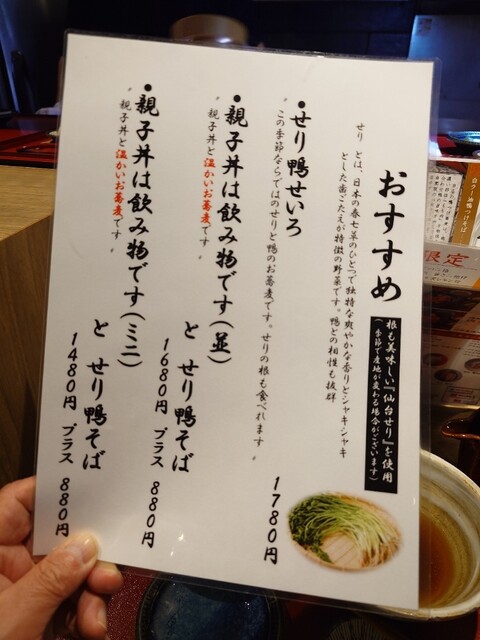 おすすめ
根も美味しい『仙台せり』を使用
(季節で産地が変わる場合がございます)
せりとは、日本の春七草のひとつで独特な爽やかな香りとシャキシャキ
とした歯ごたえが特徴の野菜です。鴨との相性も抜群
●せり鴨せいろ
1780円
この季節ならではのせりと鴨のお蕎麦です。せりの根も食べれます
●親子丼は飲み物です(並)
と せり鴨そば
親子丼と温かいお蕎麦です
1680円 プラス 880円
●親子丼は飲み物です(ミニ)
と せり鴨そば
親子丼と温かいお蕎麦です
1480円 プラス 880円
限定